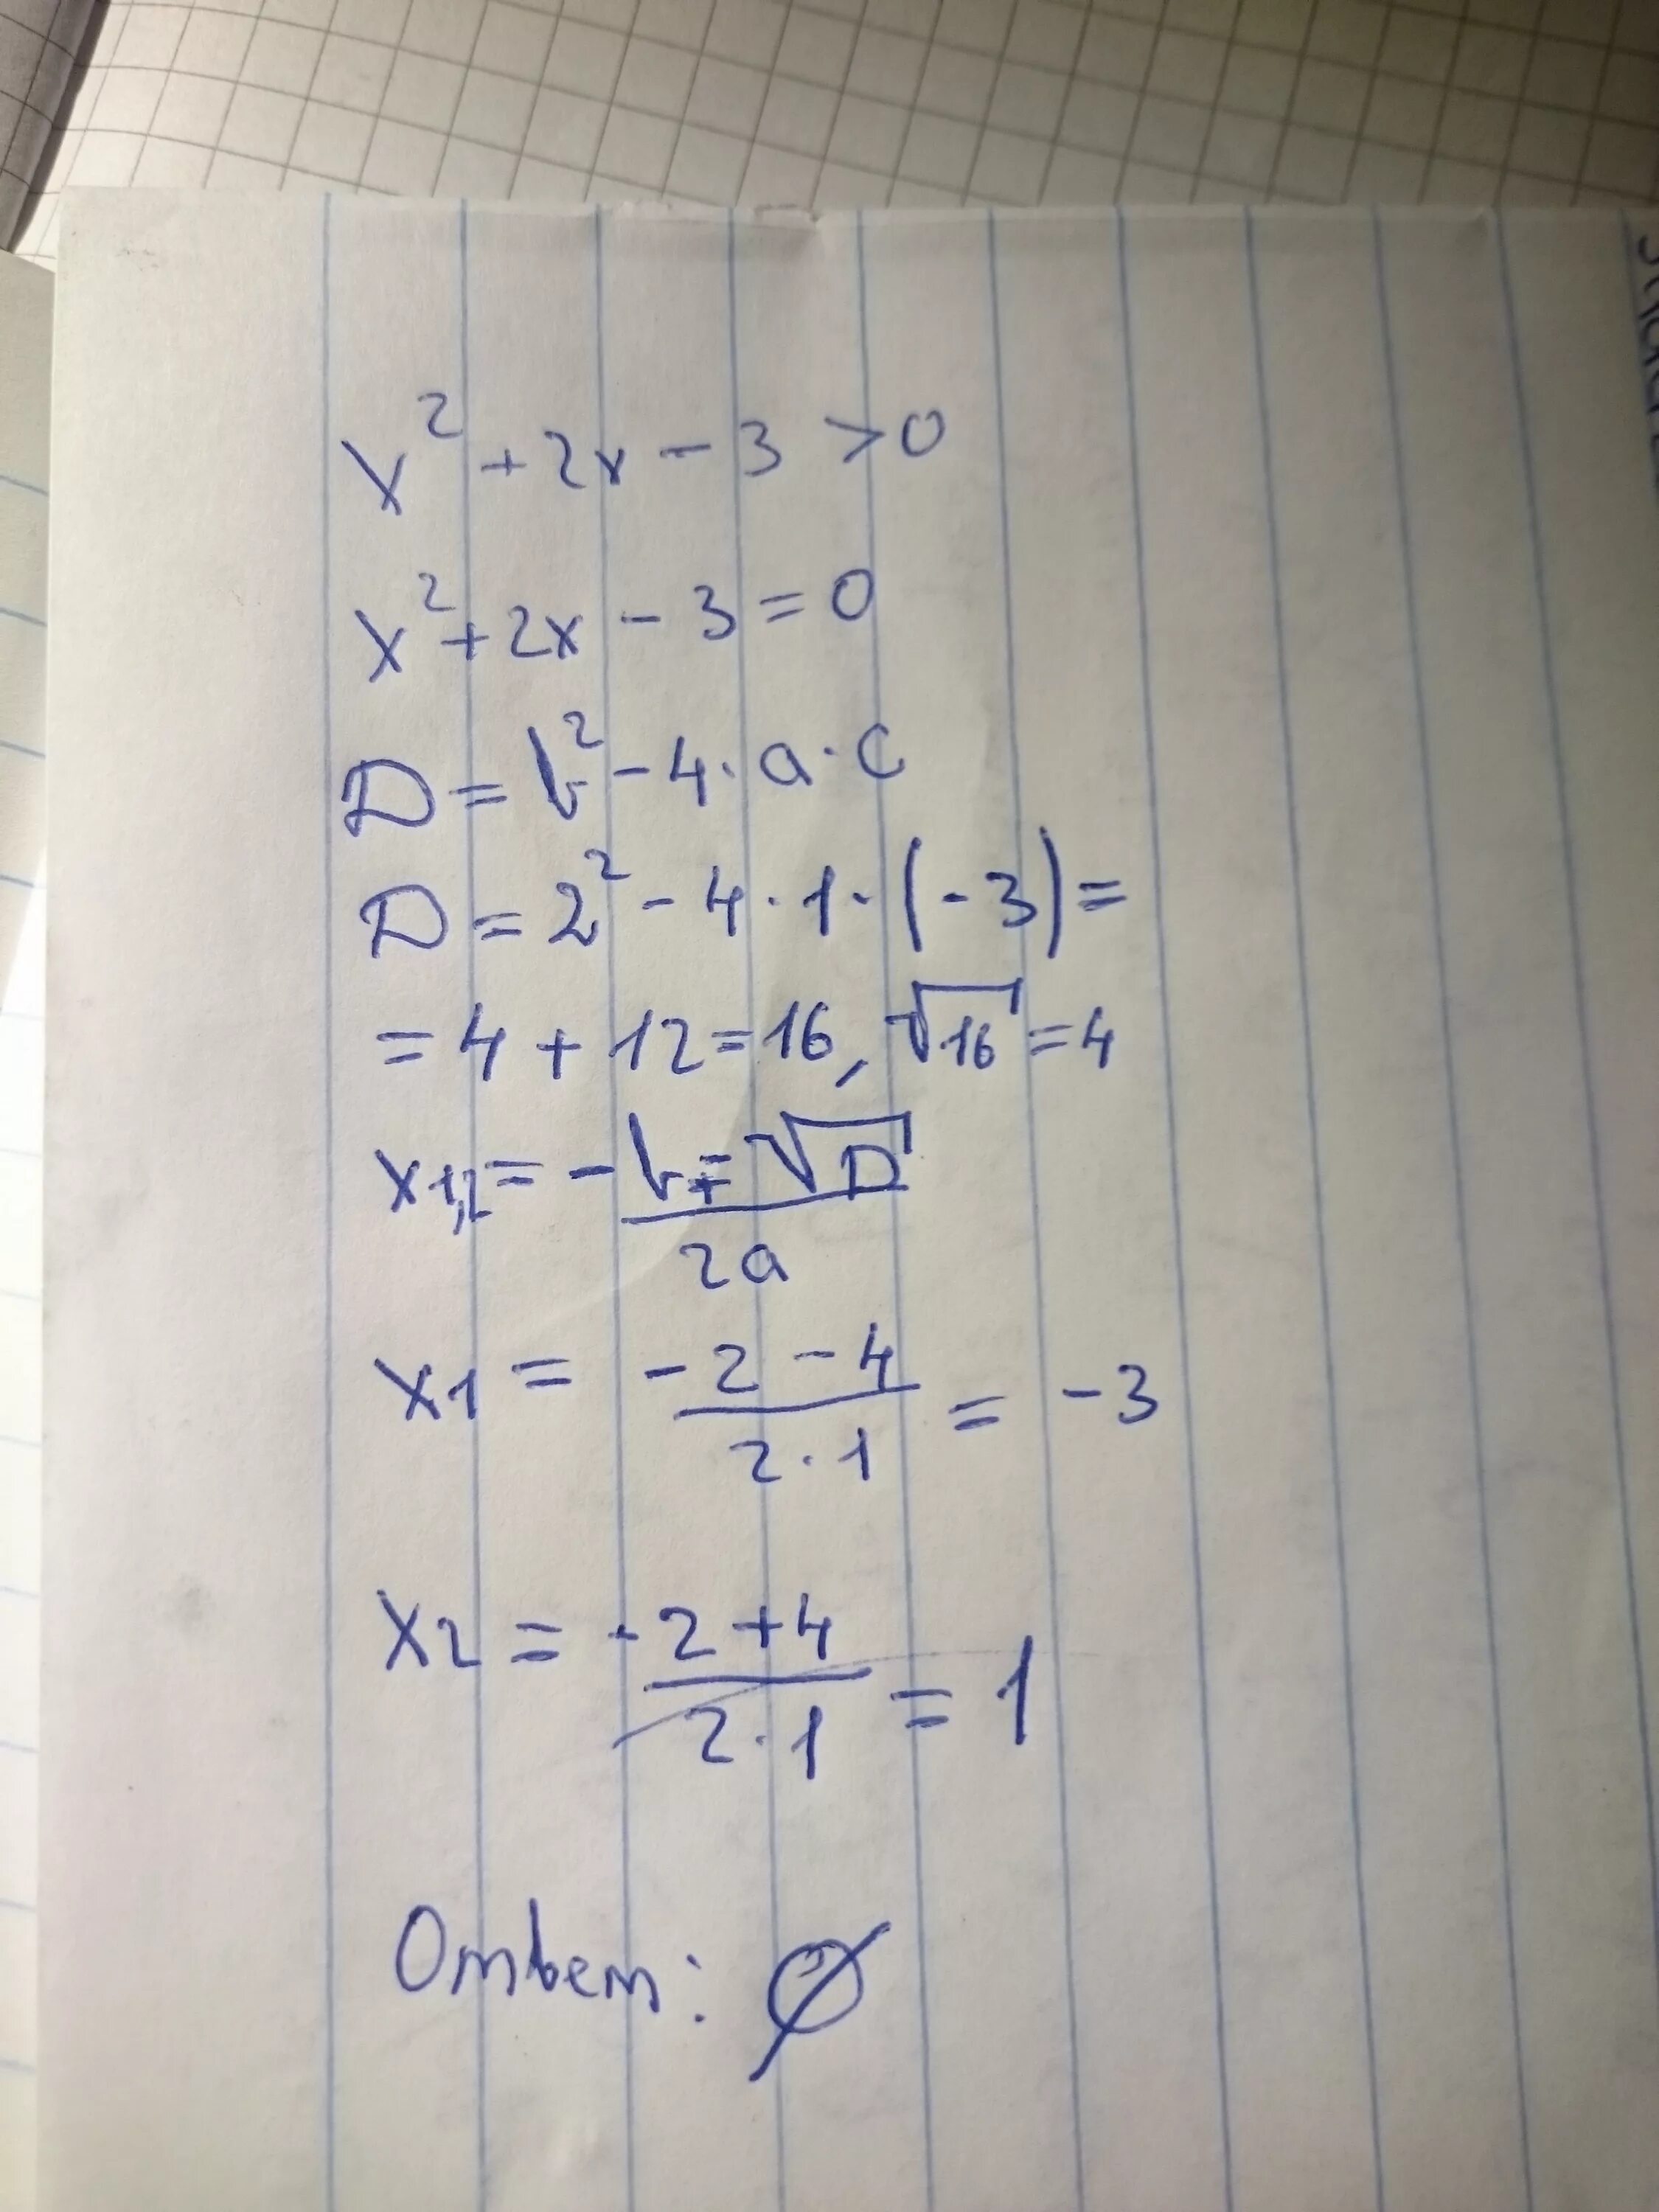 x² + 2x - 3 > 0
x² + 2x - 3 = 0
D = b² - 4 · a · c
D = 2² - 4 · 1 · (-3) =
= 4 + 12 = 16, √16 = 4
x1,2 = -b ∓ √D / 2a
x1 = -2 - 4 / 2 · 1 = -3
x2 = -2 + 4 / 2 · 1 = 1
Ответ: ∅